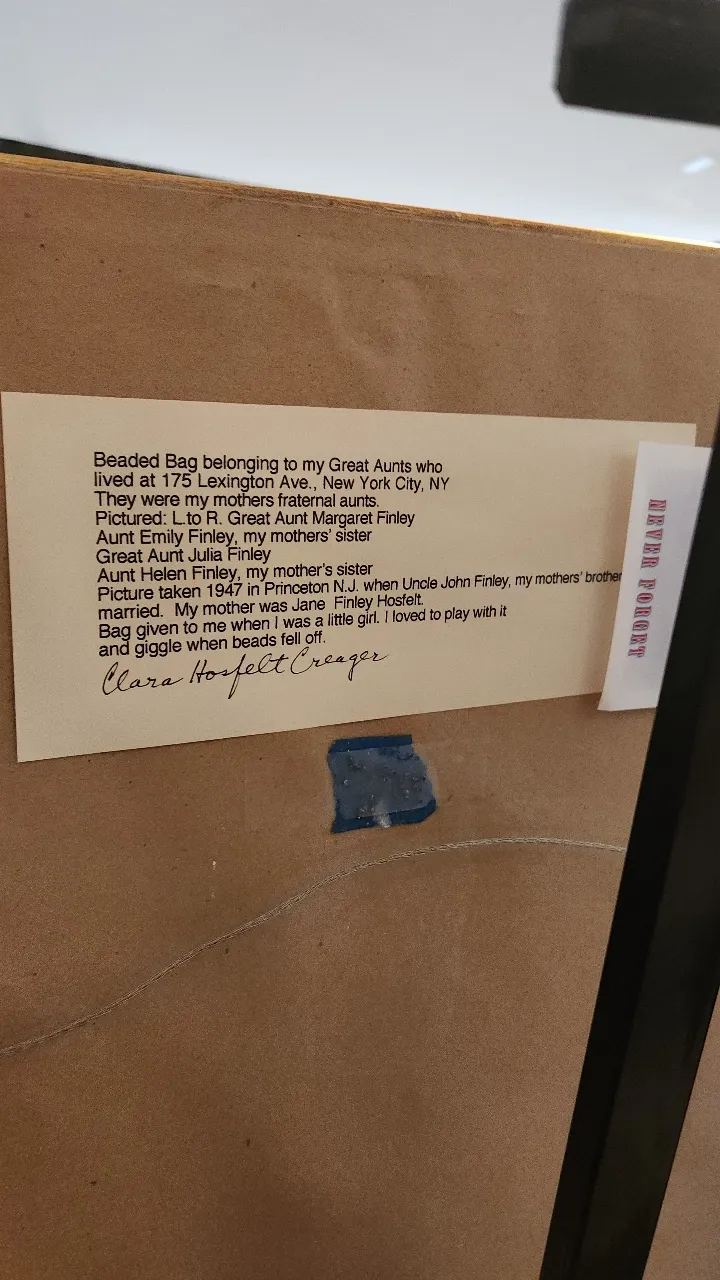 Beaded Bag belonging to my Great Aunts who
lived at 175 Lexington Ave., New York City, NY
They were my mothers fraternal aunts.
Pictured: L.to R. Great Aunt Margaret Finley
Aunt Emily Finley, my mothers' sister
Great Aunt Julia Finley
Aunt Helen Finley, my mother's sister
Picture taken 1947 in Princeton N.J. when Uncle John Finley, my mothers' brother
married. My mother was Jane Finley Hosfelt.
Bag given to me when I was a little girl. I loved to play with it
and giggle when beads fell off.
Clara Hosfelt Creager
NEVER FORGET